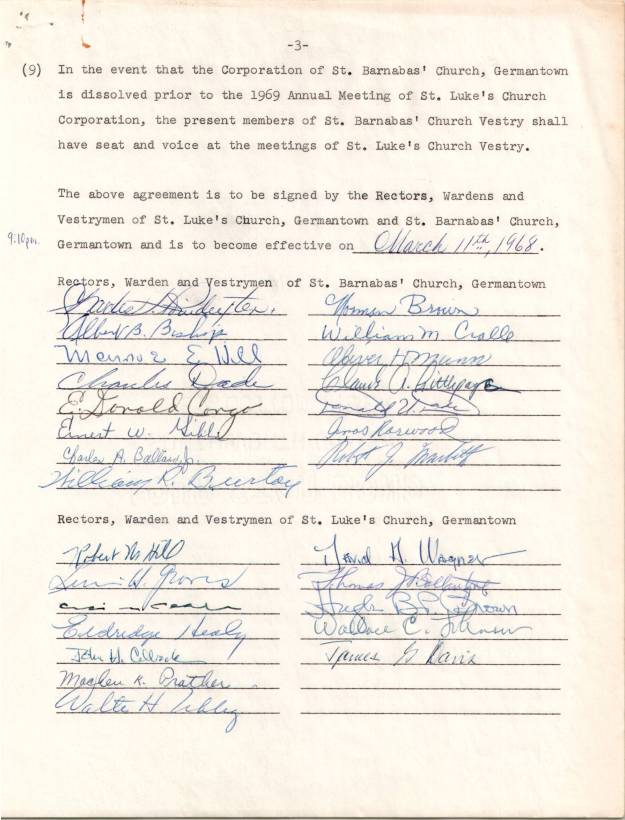 -3-
(9) In the event that the Corporation of St. Barnabas' Church, Germantown
is dissolved prior to the 1969 Annual Meeting of St. Luke's Church
Corporation, the present members of St. Barnabas' Church Vestry shall
have seat and voice at the meetings of St. Luke's Church Vestry.
The above agreement is to be signed by the Rectors, Wardens and
Vestrymen of St. Luke's Church, Germantown and St. Barnabas' Church,
9:10pm. Germantown and is to become effective on March 11th, 1968.
Rectors, Warden and Vestrymen of St. Barnabas' Church, Germantown
Norman Brown
Albert B. Bishop William M. Cralle
E. Will Oliver H.
Charles Dade A.
E. Donald Congo
Ernest W.
Charles A. Robert J.
William R. Burton
Rectors, Warden and Vestrymen of St. Luke's Church, Germantown
Robert M. Hill David H. Wagner
H. Thomas
Hugh Brown
Eldridge Healy Wallace C. Johnson
John H. James G. Davis
K. Prather
Walter H.